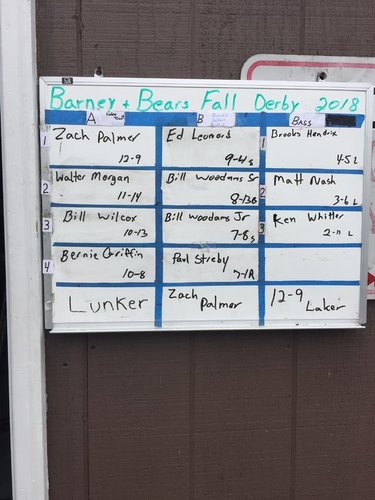 Barney + Bears Fall Derby 2018
A B Bass
1 Zach Palmer 12-9 Ed Leonard 9-4 s 1 Brooks Hendrix 4-5 L
2 Walter Morgan 11-14 Bill Woodams Sr 8-13 B 2 Matt Nash 3-6 L
3 Bill Wilcox 10-13 Bill Woodams Jr 7-8 s 3 Ken Whitler 2-11 L
4 Bernie Griffin 10-8 Paul Streby 7-1 R
Lunker Zach Palmer 12-9 Laker